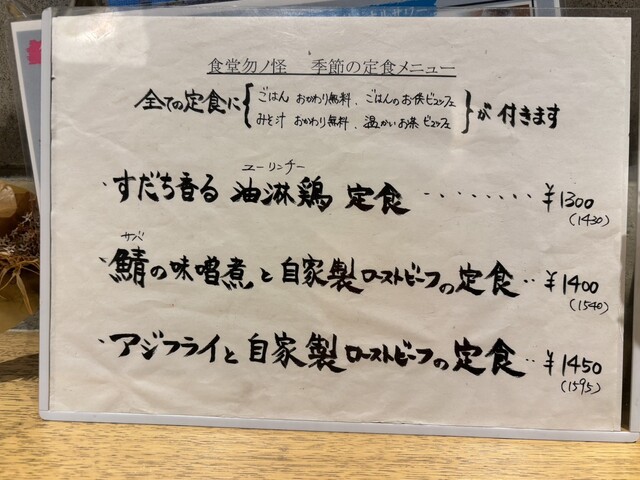 食堂勿ノ怪 季節の定食メニュー
全ての定食に{ごはん おかわり無料、ごはんのお供ビュッフェ
みそ汁 おかわり無料、温かいお茶ビュッフェ}が付きます
ユーリンチー
・すだち香る 油淋鶏 定食 ········ ¥1300
(1430)
サバ
・鯖の味噌煮と自家製ローストビーフの定食 ·· ¥1400
(1540)
・アジフライと自家製ローストビーフの定食 ·· ¥1450
(1595)